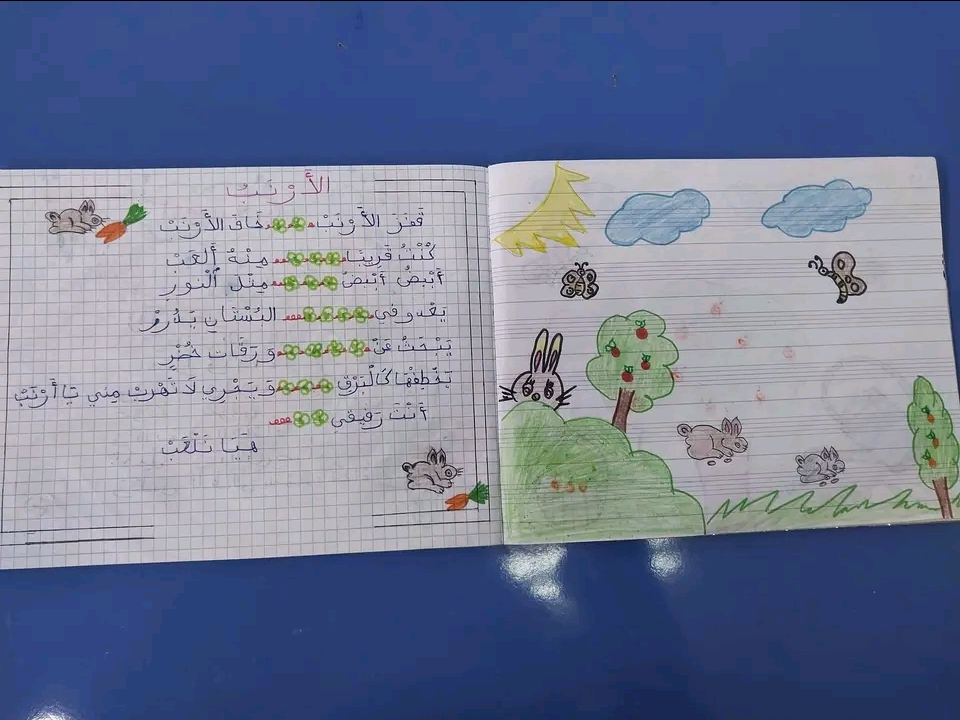 الأَرْنَبُ
قَفَزَ الأَرْنَبْ خَافَ الأَرْنَبْ
كُنْتُ قَرِيبًا مِنْهُ أَلْعَبْ
أَبْيَضُ أَبْيَضُ مِثْلَ النُّورِ
يَعْدُو فِي البُسْتَانِ يَدُورْ
يَبْحَثُ عَنْ وَرَقَاتٍ خُضْرٍ
يَخْطِفُهَا كَالْبَرْقِ وَ يَجْرِي لَا تَهْرُبْ مِنِّي يَا أَرْنَبْ
أَنْتَ رَفِيقِي
هَيَّا نَلْعَبْ